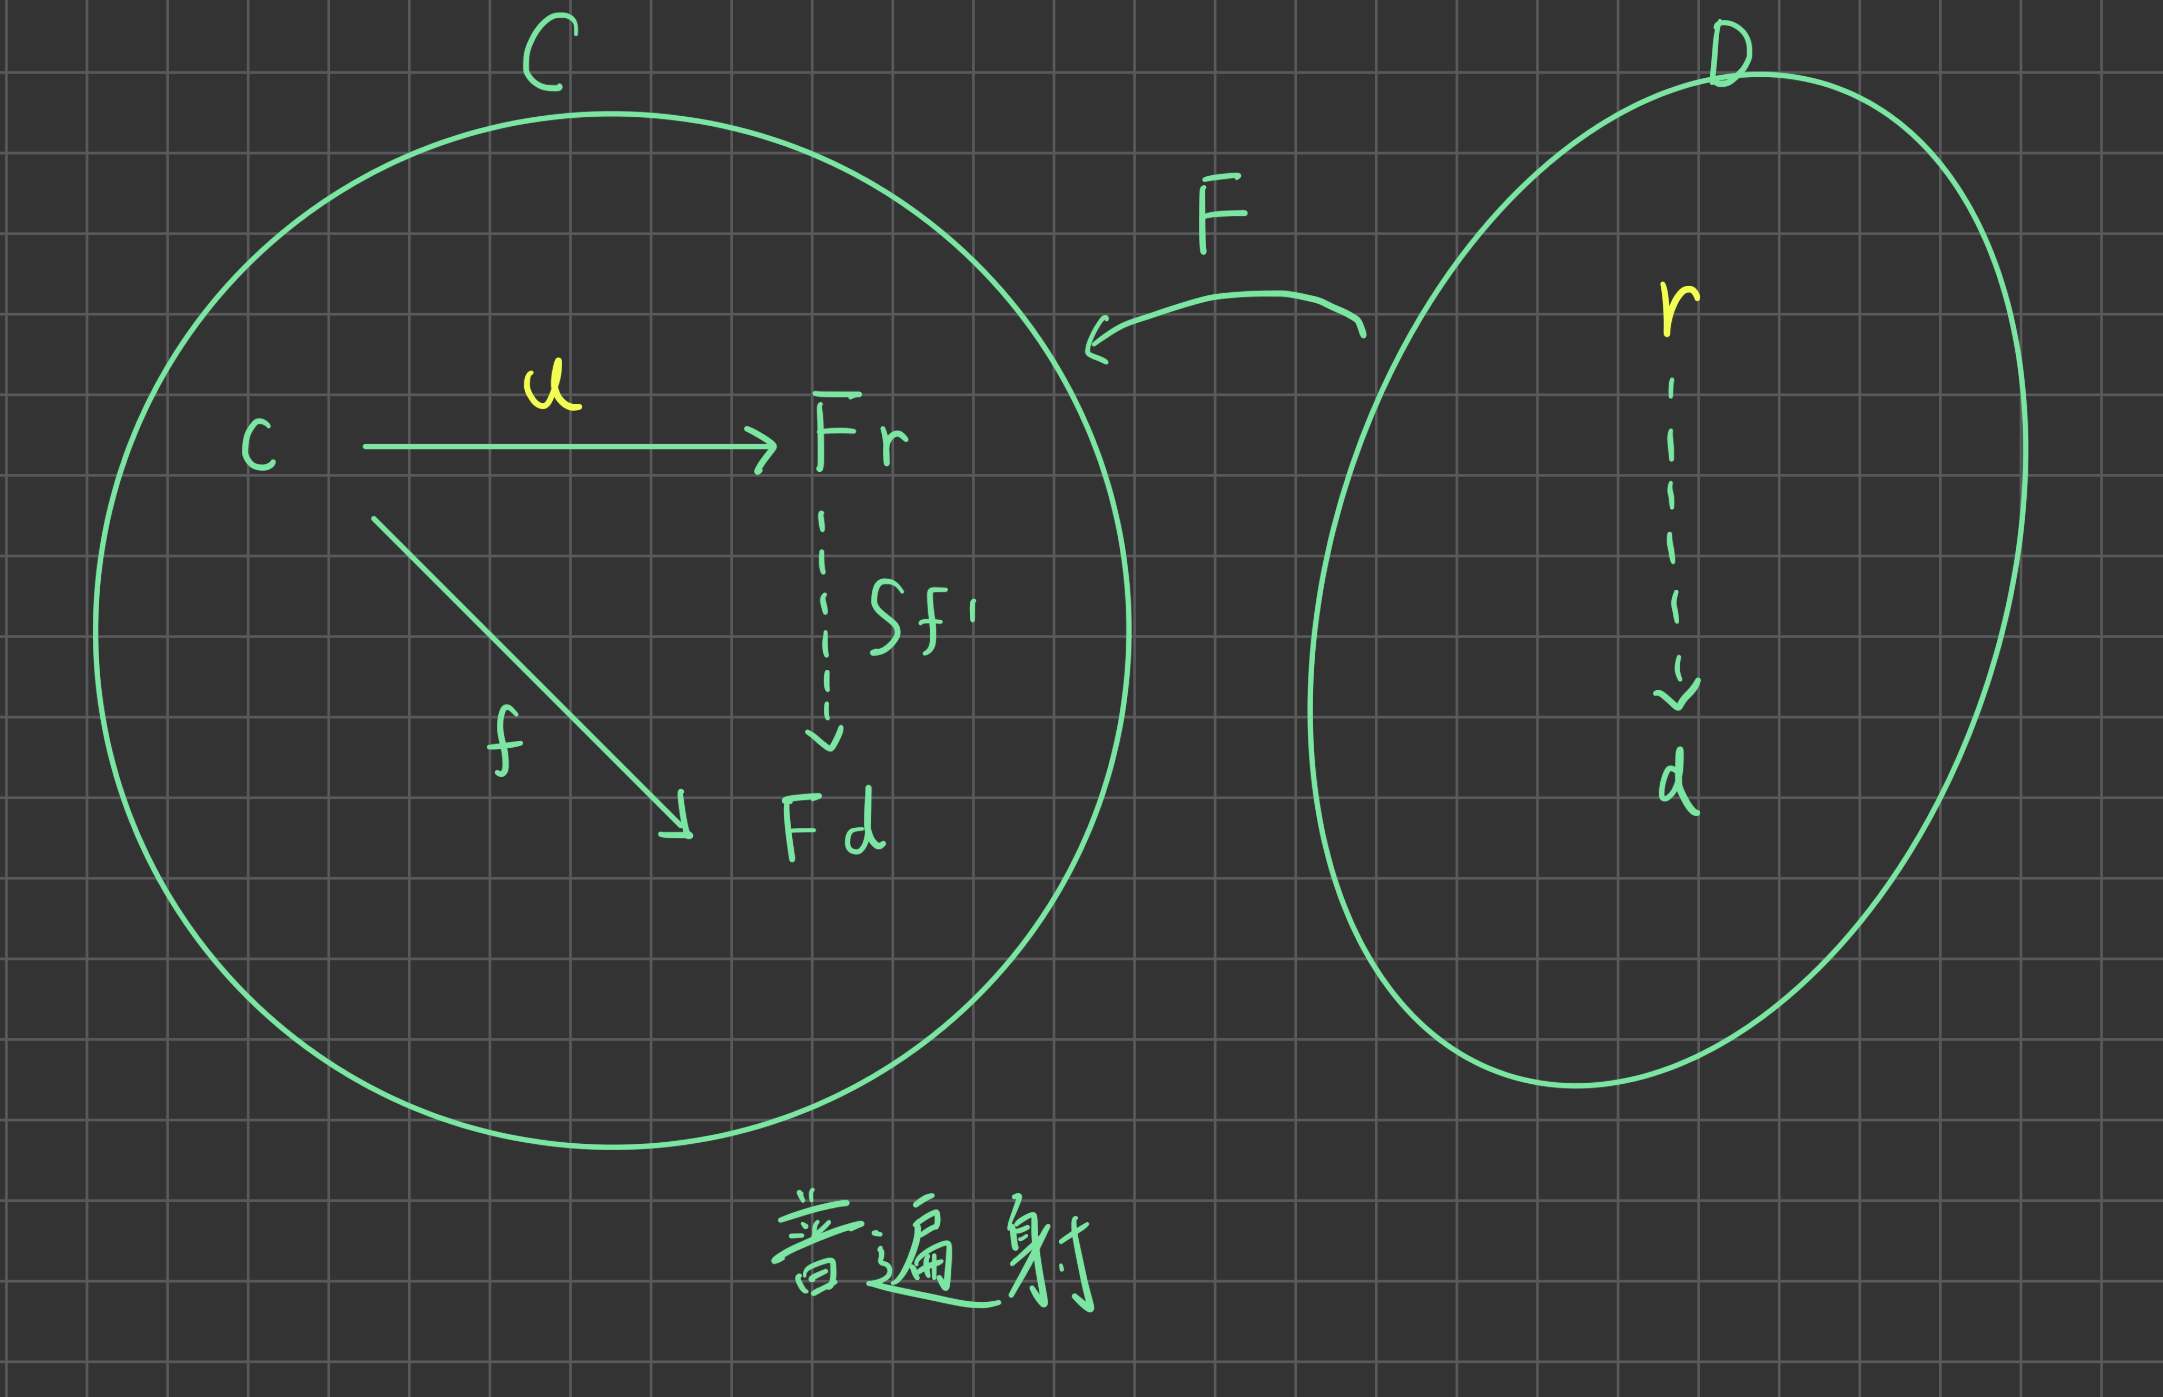 C
D
F
r
u
C
Fr
Sf'
f
Fd
d
普遍射